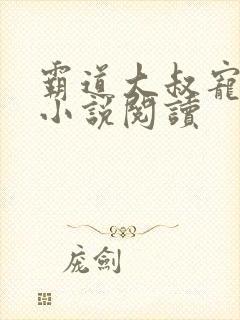 霸道大叔寵
小說閱讀
庞劍